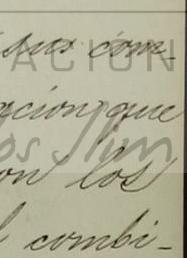 sus com-
ACIÓN
ación que
os Slim
on los
l combi-